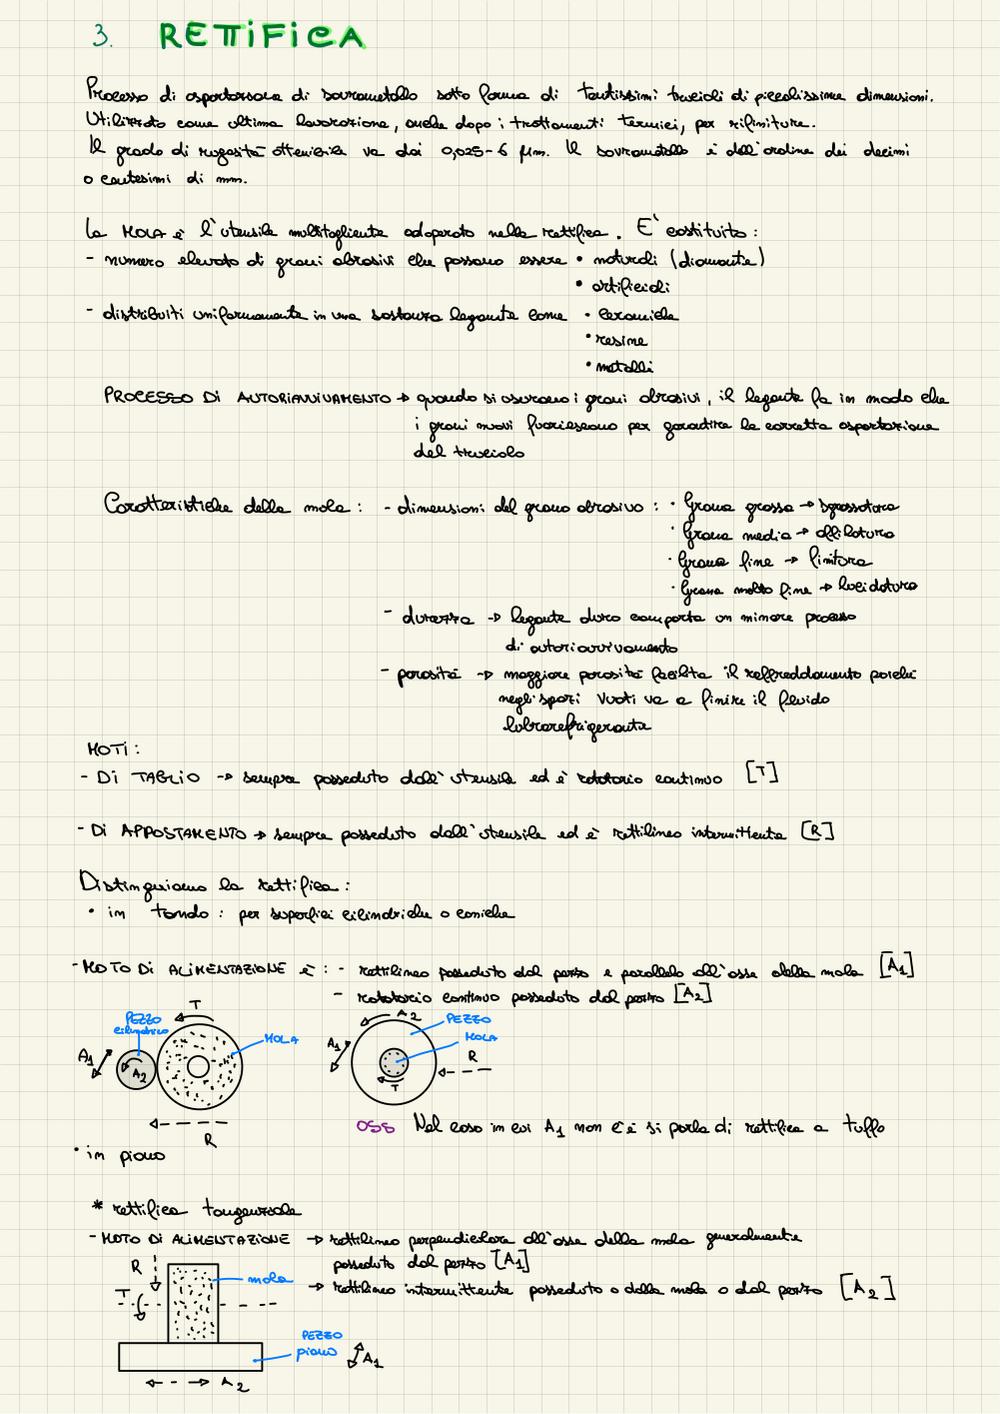 3. RETTIFICA
Processo di asportazione di sovrametallo sotto forma di tantissimi trucioli di piccolissime dimensioni.
Utilizzato come ultima lavorazione, anche dopo i trattamenti termici, per rifiniture.
Il grado di rugosità ottenibile va dai 0,025-6 µm. Il sovrametallo è dell'ordine dei decimi
o centesimi di mm.
La MOLA è l'utensile multitagliente adoperato nella rettifica. E' costituito:
- numero elevato di grani abrasivi che possono essere • naturali (diamante)
• artificiali
- distribuiti uniformemente in una sostanza legante come • ceramiche
• resine
• metalli
PROCESSO DI AUTORIAVVIVAMENTO → quando si usurano i grani abrasivi, il legante fa in modo che
i grani nuovi fuoriescano per garantire la corretta asportazione
del truciolo
Caratteristiche della mola: - dimensioni del grano abrasivo: • Grana grossa → sgrossatura
• Grana media → affilatura
• Grana fine → finitura
• Grana molto fine → lucidatura
- durezza → legante duro comporta un minore processo
di autoriavvivamento
- porosità → maggiore porosità facilita il raffreddamento poiché
negli spazi vuoti va a finire il fluido
lubrorefrigerante
MOTI:
- DI TAGLIO → sempre posseduto dall'utensile ed è rotatorio continuo [T]
- DI APPOSTAMENTO → sempre posseduto dall'utensile ed è rettilineo intermittente [R]
Distinguiamo la rettifica:
• in tondo: per superfici cilindriche o coniche
- MOTO DI ALIMENTAZIONE è: - rettilineo posseduto dal pezzo e parallelo all'asse della mola [A1]
- rotatorio continuo posseduto dal pezzo [A2]
PEZZO
cilindrico
T
MOLA
A1
A2
R
A2
PEZZO
MOLA
A1
R
T
OSS Nel caso in cui A1 non c'è si parla di rettifica a tuffo
• in piano
* rettifica tangenziale
- MOTO DI ALIMENTAZIONE → rettilineo perpendicolare all'asse della mola generalmente
posseduto dal pezzo [A1]
→ rettilineo intermittente posseduto o dalla mola o dal pezzo [A2]
R
mola
T
PEZZO
piano
A1
A2